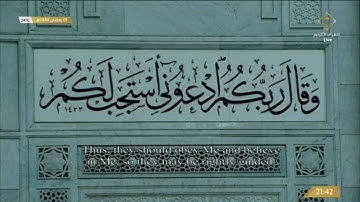 24°C
القرآن الكريم
Live
وقال ربكم ادعوني أستجب لكم
١٤٣٣
Thus, they should obey Me and believe
in Me, so they may be rightly guided.
21:42